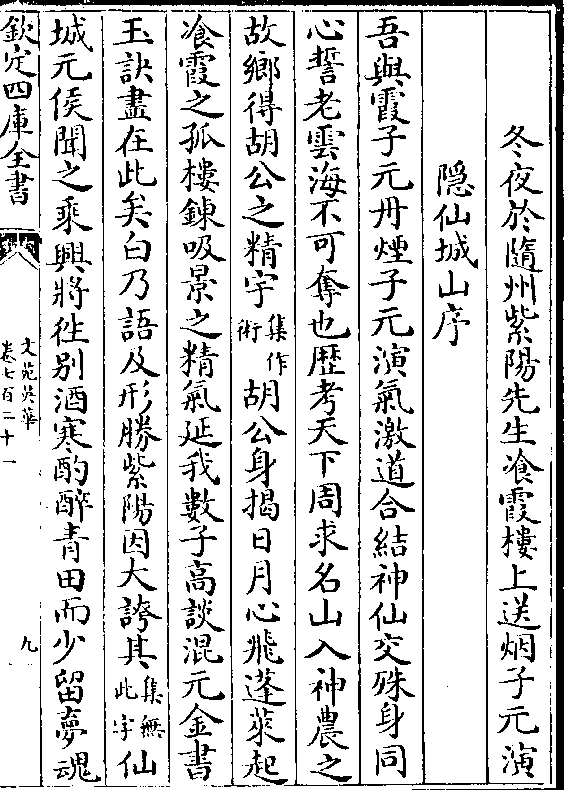 冬夜於隨州紫陽先生飡霞樓上送烟子元演
隐仙城山序
吾與霞子元丹煙子元演氣激道合結神仙交殊身同
心誓老雲海不可奪也歴考天下周求名山入神農之
故鄉得胡公之精宇集作術胡公身揭日月心飛蓬萊起
飡霞之孤樓鍊吸景之精氣延我數子高談混元金書
玉訣盡在此矣白乃語及形勝紫陽因大誇其集無此字仙
城元侯聞之乘興將徃别酒寒酌醉青田而少留夢魂
欽定四庫全書
文苑英華
卷七百二十一
九